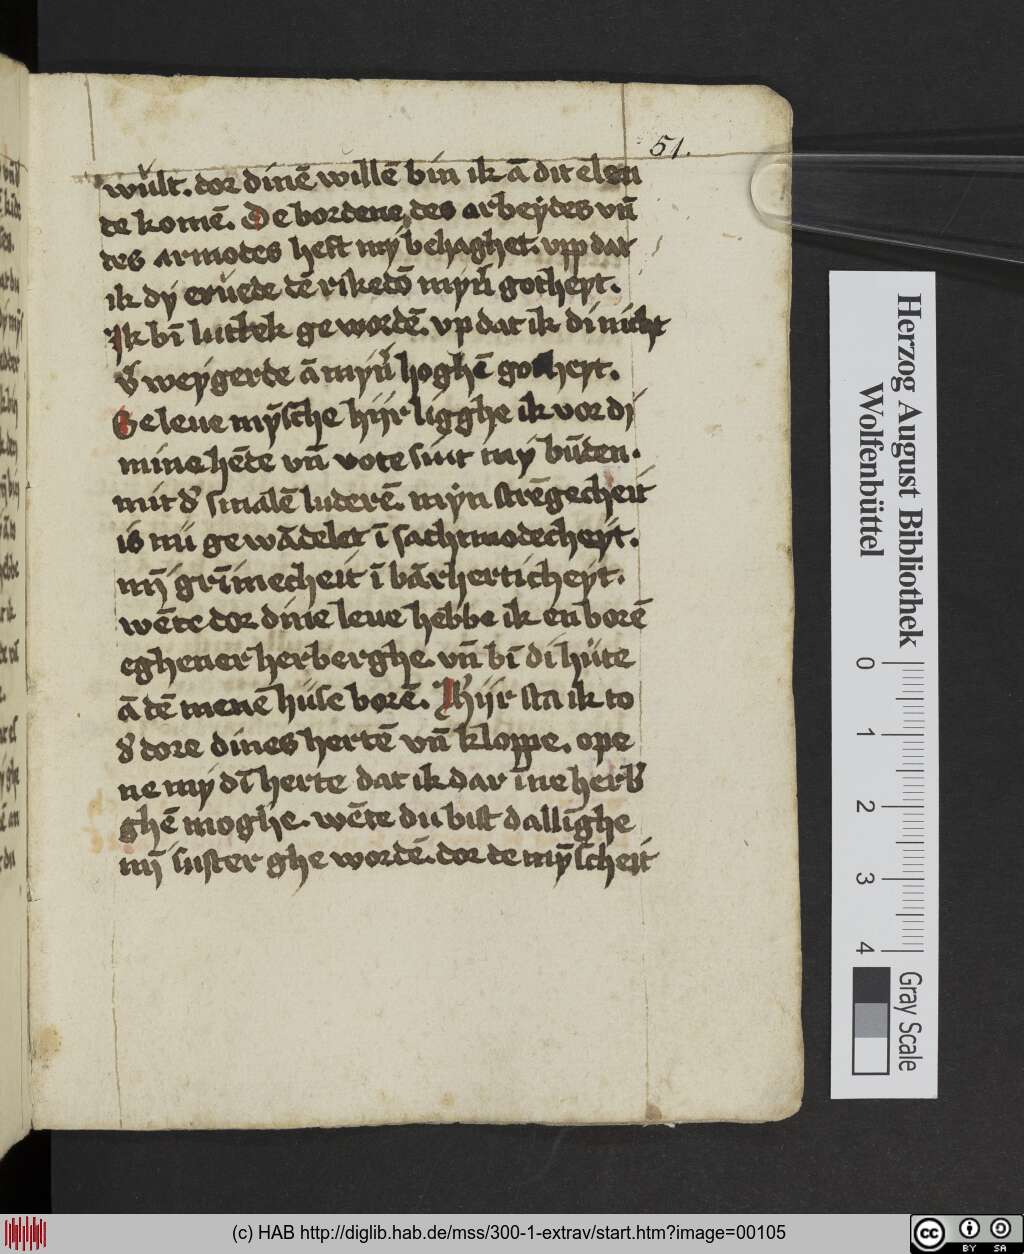 51.
wult. dor dinē willē bin ik ā dit elen
de komē. De bordene des arbeydes vn̄
des armodes heft my behaghet. vpp dat
ik dy eruede dē rikedō myn̄ gotheyt.
Ik bī luttek ge wordē. vp dat ik di nicht
v̄ weygerde ā myn̄ hoghē gotheyt.
Seleue mȳsche hijr ligghe ik vor di
mine hēde vn̄ vote sint my būden.
mit d' smalē luderē. myn strēgecheit
is nu ge wādelet ī sachtmodecheyt.
mȳ grīmecheit ī bārherticheyt.
wēte dor dine leue hebbe ik en borē
eghener herberghe. vn̄ bī di hute
ā dē menē huse borē. Hijr sta ik to
d' dore dines hertē vn̄ kloppe. ope
ne my dī herte dat ik dar īne herb'
ghē moghe. wēte du bist dallīghe
mȳ suster ghe wordē. dor de mȳscheit
Herzog August Bibliothek
Wolfenbüttel
0 1 2 3 4
Gray Scale
(c) HAB http://diglib.hab.de/mss/300-1-extrav/start.htm?image=00105
cc BY SA